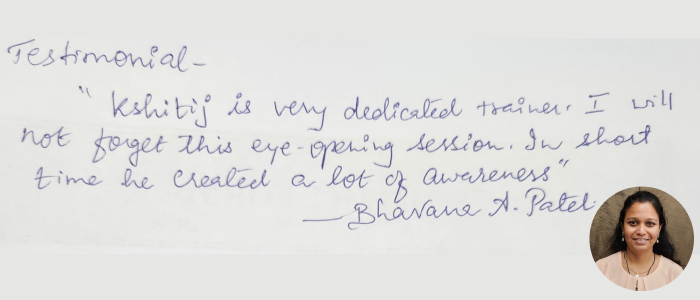 Testimonial-
" Kshitij is very dedicated trainer. I will
not forget this eye-opening session. In short
time he created a lot of awareness"
— Bhavana A. Patel